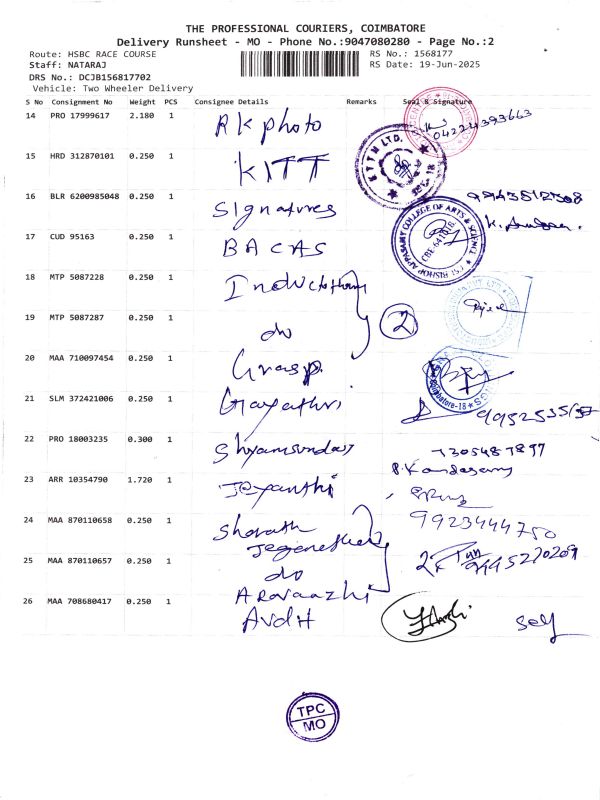 THE PROFESSIONAL COURIERS, COIMBATORE
Delivery Runsheet - MO - Phone No.:9047080280 - Page No.:2
Route: HSBC RACE COURSE
RS No.: 1568177
Staff: NATARAJ
RS Date: 19-Jun-2025
DRS No.: DCJB156817702
Vehicle: Two Wheeler Delivery
S No Consignment No Weight PCS Consignee Details Remarks Seal & Signature
14 PRO 17999617 2.180 1 RK photo
15 HRD 312870101 0.250 1 KITT
16 BLR 6200985048 0.250 1 Signatures
17 CUD 95163 0.250 1 BACAS
18 MTP 5087228 0.250 1
19 MTP 5087287 0.250 1 do 2
20 MAA 710097454 0.250 1 Grasp
21 SLM 372421006 0.250 1 Gayathri
22 PRO 18003235 0.300 1 Shyamsundar 7305487897
23 ARR 10354790 1.720 1 Jeyanthi P. Kandasamy
24 MAA 870110658 0.250 1 Sharath 9923444750
25 MAA 870110657 0.250 1 do
26 MAA 708680417 0.250 1 Avdh self
APPASAMY COLLEGE OF ARTS & SCIENCE
TPC
MO